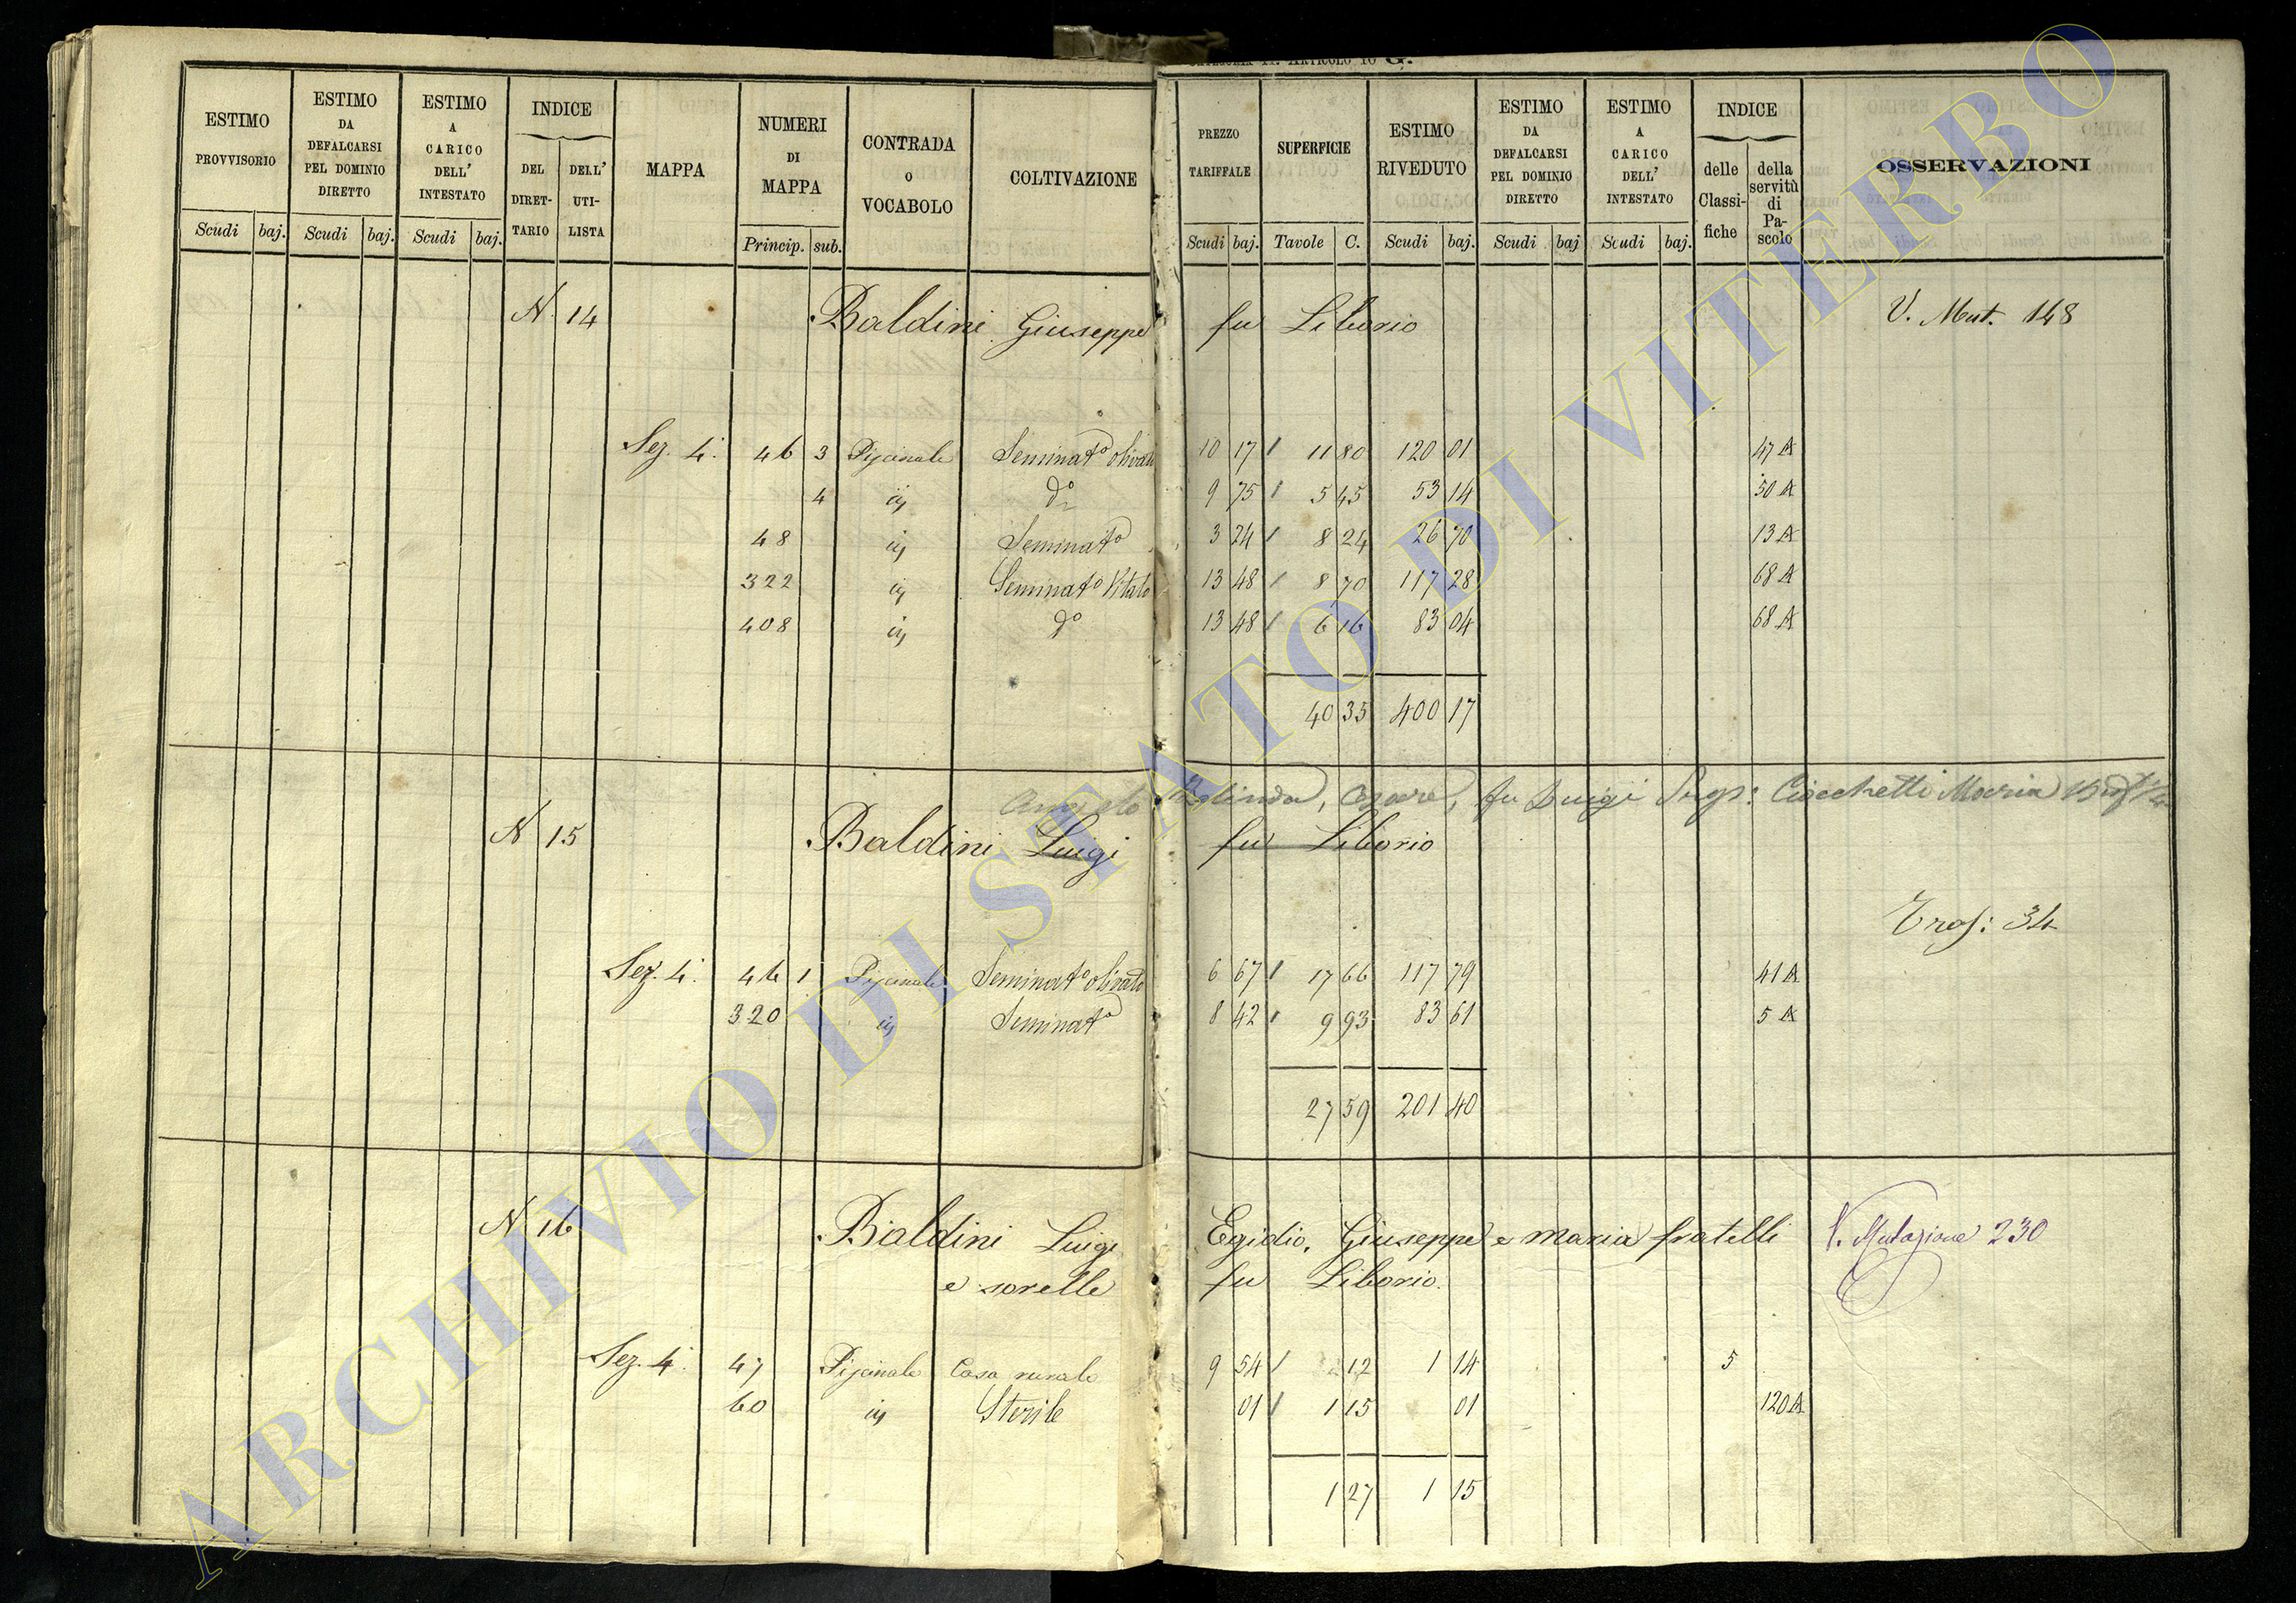 ARTICOLO 10 G.
ESTIMO PROVVISORIO Scudi baj.
ESTIMO DA DEFALCARSI PEL DOMINIO DIRETTO Scudi baj.
ESTIMO A CARICO DELL' INTESTATO Scudi baj.
INDICE DEL DIRET-TARIO DELL' UTI-LISTA
MAPPA
NUMERI DI MAPPA Princip. sub.
CONTRADA O VOCABOLO
COLTIVAZIONE
PREZZO TARIFFALE Scudi baj.
SUPERFICIE Tavole C.
ESTIMO RIVEDUTO Scudi baj.
ESTIMO DA DEFALCARSI PEL DOMINIO DIRETTO Scudi baj
ESTIMO A CARICO DELL' INTESTATO Scudi baj.
INDICE delle Classi-fiche della servitù di Pa-scolo
OSSERVAZIONI
N. 14 Baldini Giuseppe fu Liborio V. Mut. 148
Sez. 4. 46 3 Pijanale Seminato olivato 10 17 11 80 120 01 47 A
4 id do 9 75 5 45 53 14 50 A
48 id Seminato 3 24 8 24 26 70 13 A
322 id Seminato Vitato 13 48 8 70 117 28 68 A
408 id do 13 48 6 16 83 04 68 A
40 35 400 17
Cesare, fu Luigi Ciocchetti Maria
N 15 Baldini Luigi fu Liborio
Tras: 34
Sez. 4. 46 1 Pijanale Seminato olivato 6 67 17 66 117 79 41 A
320 id Seminato 8 42 9 93 83 61 5 A
27 59 201 40
N 16 Baldini Luigi Egidio, Giuseppe e Maria fratelli V. Mutazione 230
e sorelle fu Liborio.
Sez. 4. 47 Pijanale Casa rurale 9 54 12 1 14 5
60 id Sterile 01 1 15 01 120 A
1 27 1 15
ARCHIVIO DI STATO DI VITERBO